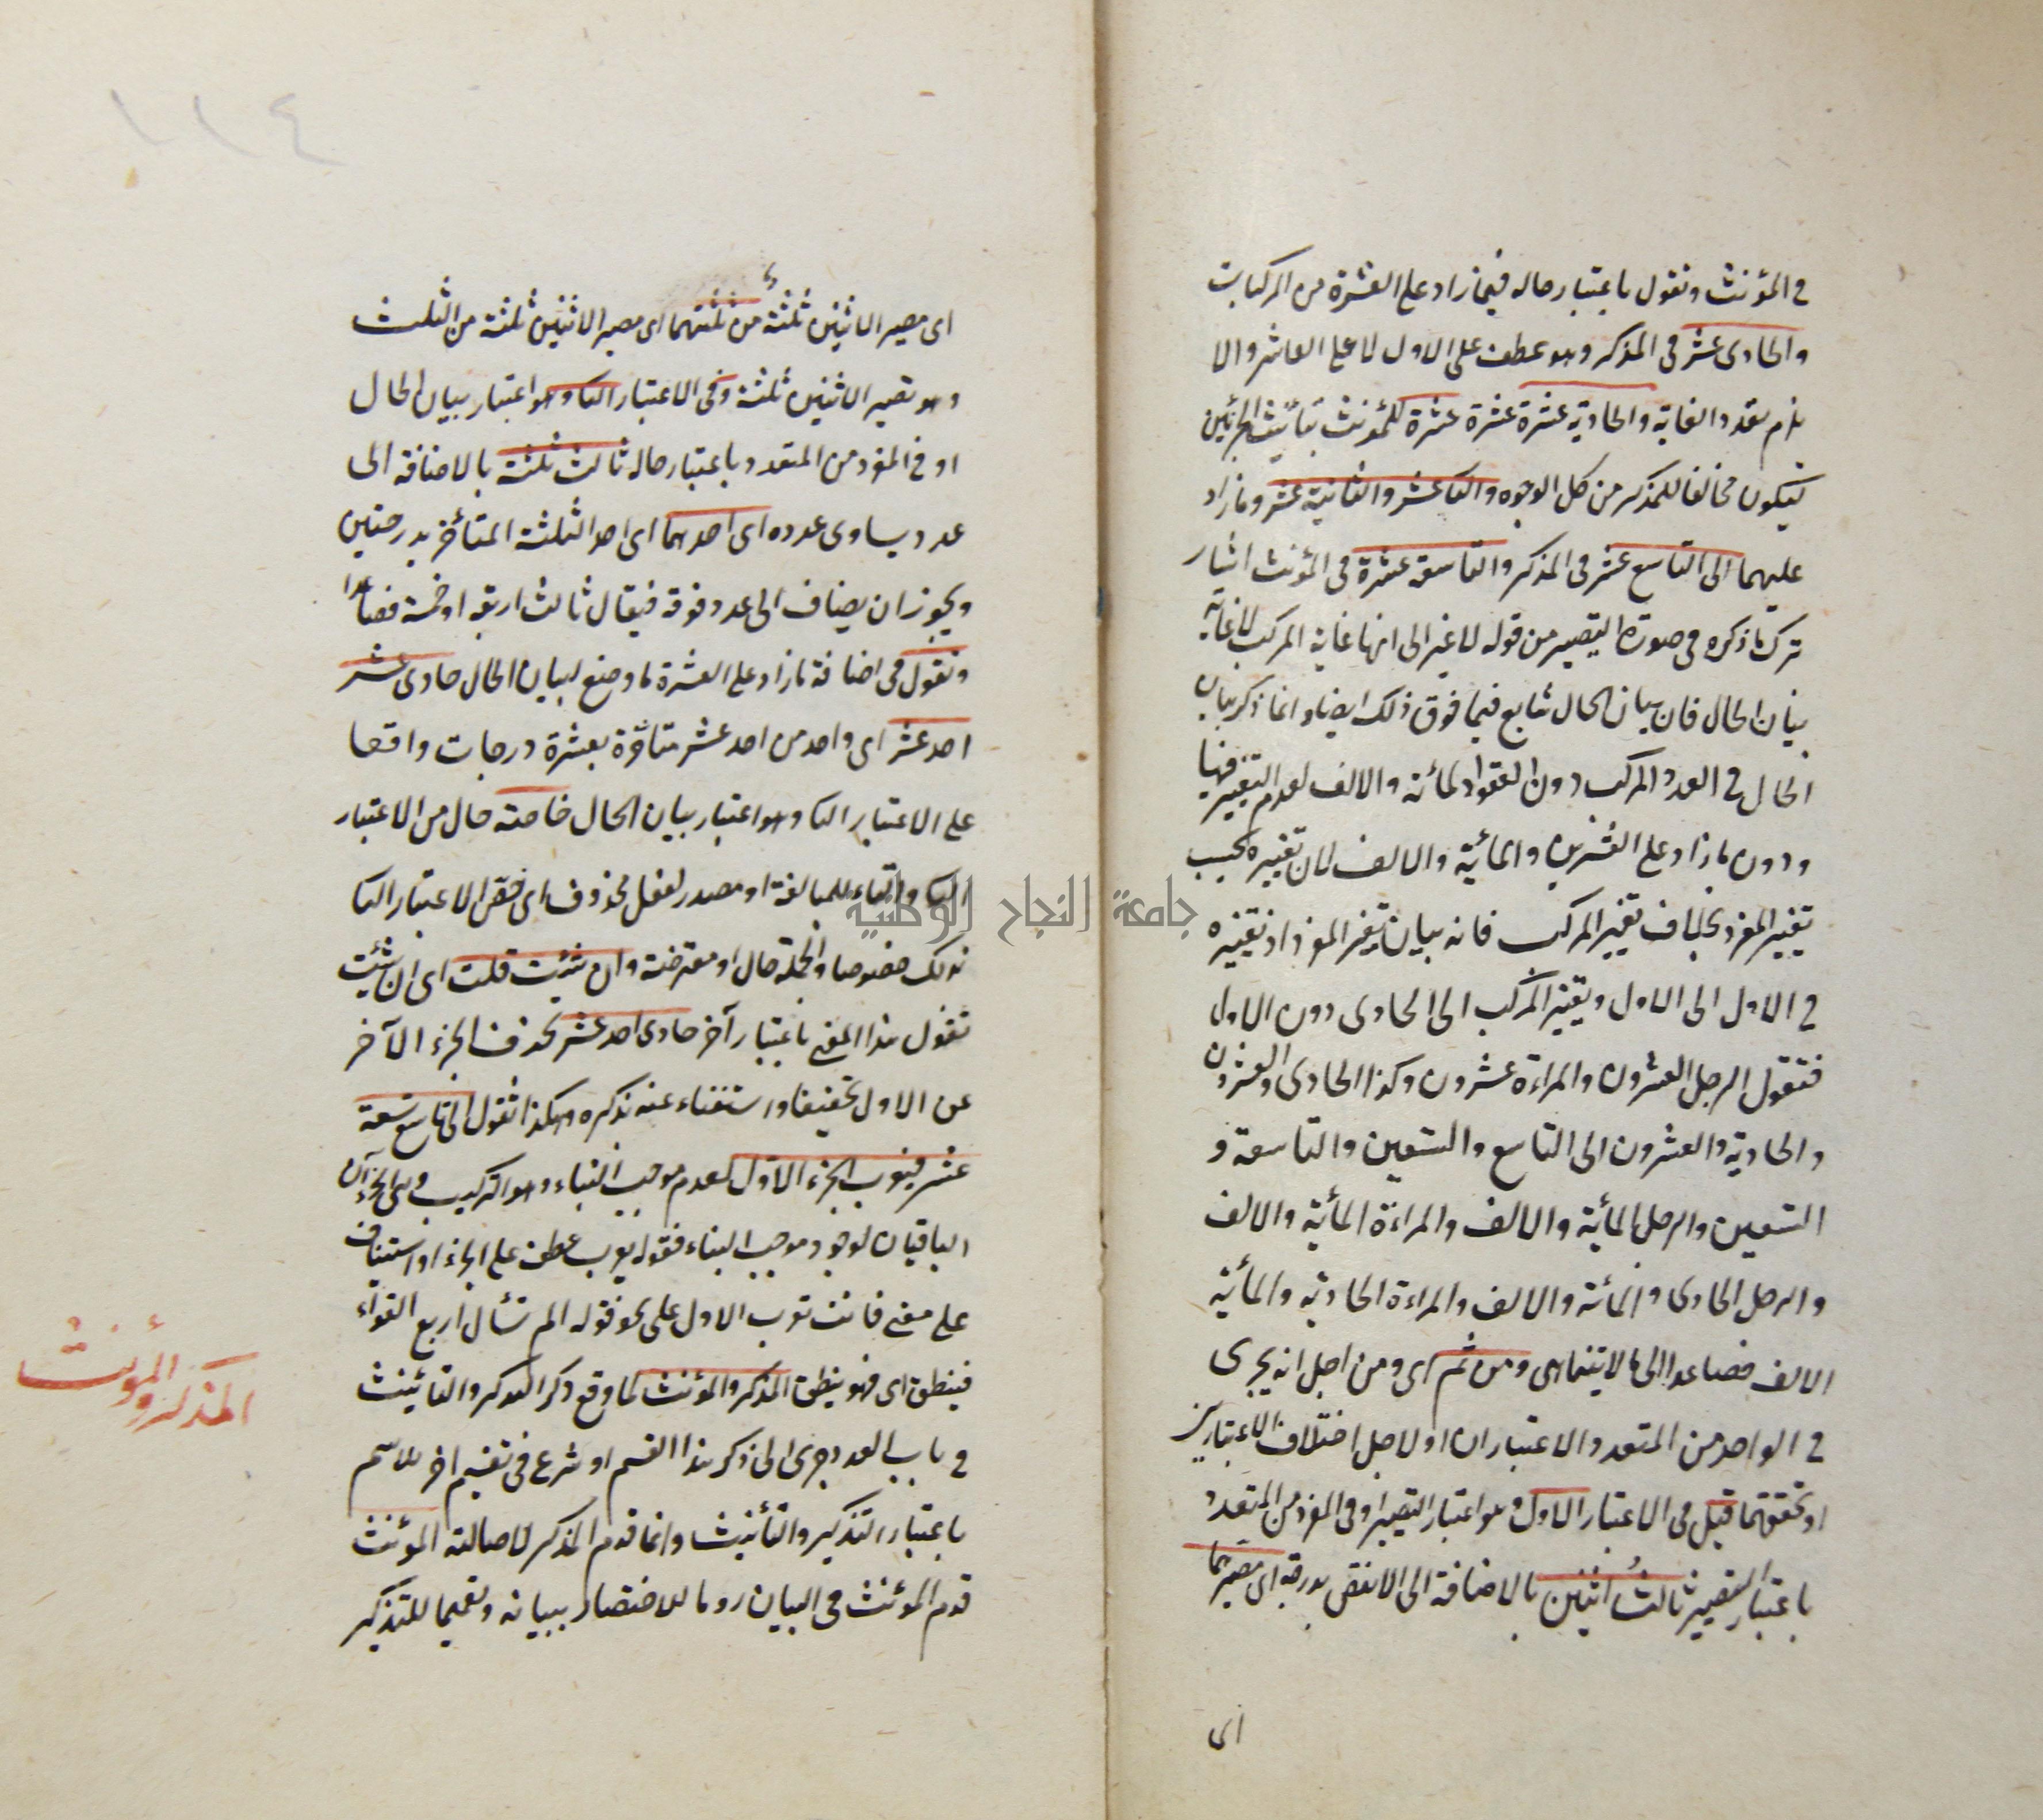 في المؤنث وتقول باعتبار حاله فيما زاد على العشرة من المركبات
والحادى عشر فى المذكر وهو عطف على الاول لا على العاشر والا
يلزم تعدد الغاية والحادية عشرة عشرة عشرة للمؤنث بتأنيث الجزئين
ليكون مخالفا للمذكر من كل الوجوه والثا عشر والثانية عشر وما زاد
عليهما الى التاسع عشر فى المذكر والتاسعة عشرة فى المؤنث اشار
ترك ما ذكره فى صورة التصيير من قوله لا غير الى انها غاية المركب لا غاية
بيان الحال فان بيان الحال شايع فيما فوق ذلك ايضا وانما ذكر بيان
الحال في العدد المركب دون العقود المائة والالف لعدم التغيير فيها
ودون ما زاد على العشرين والمائية والالف لان تغييره بحسب
تغيير المفرد بخلاف تغيير المركب فانه بيان تغير المفرد اذ تغييره
في الاول الى الاول وتغيير المركب الى الحادى دون الاول
فتقول الرجل العشرون والمراءة عشرون وكذا الحادى والعشرون
والحادية والعشرون الى التاسع والتسعين والتاسعة و
التسعين والرجل المائية والالف والمراءة المأية والالف
والرجل الحادى والمائة والالف والمراءة الحادية والمأية
الالف فصاعدا الى ما لا يتناهى ومن ثم اى ومن اجل انه يجرى
في الواحد من المتعدد الاعتباران او لاجل اختلاف الاعتبارين
او تحققهما قيل فى الاعتبار الاول وهو اعتبار التصيير او فى المفرد من المتعدد
باعتبار التصيير ثالث اثنين بالاضافة الى الانقص بدرجة اى مصيرهما
اى
١١٤
اى مصير الاثنين ثلثة من ثلثتهما اى مصير الاثنين ثلثة من الثلث
وهو تصيير الاثنين ثلثة وفى الاعتبار الثا وهو اعتبار بيان الحال
او في المفرد من المتعدد باعتبار حاله ثالث ثلثة بالاضافة الى
عدد يساوى عدده اى احدهما اى احد الثلثة المتأخر بدرجتين
ويجوز ان يضاف الى عدد فوقه فيقال ثالث اربعة او خمسة فصاعدا
وتقول فى اضافة ما زاد على العشرة ما وضع لبيان الحال حادى عشر
احد عشر اى واحد من احد عشر متأخرة بعشرة درجات واقعا
على الاعتبار الثا وهو اعتبار بيان الحال خاصة حال من الاعتبار
الثا والتاء للمبالغة او مصدر لفعل محذوف اى خص الاعتبار الثا
بذلك خصوصا والجملة حال او معترضة وان شئت قلت اى ان شئت
تقول هذا المعنى باعتبار آخر حادى احد عشر بحذف الجزء الآخر
عن الاول تخفيفا واستغناء عنه بذكره وهكذا تقول الى تاسع تسعة
عشر فيعرب الجزء الاول لعدم موجب البناء وهو التركيب وبنى الجزءان
الباقيان لوجود موجب البناء فقوله يعرب عطف على الجزاء او استيناف
على معنى فانت تعرب الاول على نحو قوله الم تسأل اربع القواء
فينطق اى فهو ينطق المذكر والمؤنث لما وقع ذكر التذكير والتأنيث
في باب العدد جرى الى ذكر هذا القسم او شرع فى تقسيم اخر للاسم
باعتبار التذكير والتأنيث وانما قدم المذكر لاصالته المؤنث
قدم المؤنث فى البيان روما للاختصار ببيانه وتعميما للتذكير
المذكر والمؤنث
جامعة النجاح الوطنية